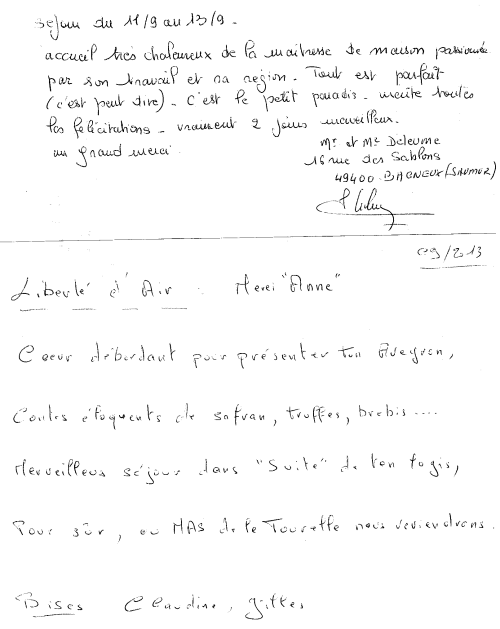 séjour du 11/9 au 13/9.
accueil très chaleureux de la maîtresse de maison passionnée
par son travail et sa région. Tout est parfait
(c'est peut dire). c'est le petit paradis. mérite toutes
les félicitations. vraiment 2 jours merveilleux.
un grand merci.
Mr et Me Deleume
16 rue des Sablons
49400. BAGNEUX (SAUMUR)
09/213
Liberté d'Air : Merci "Anne"
Coeur débordant pour présenter ton Aveyron,
Contes éloquents de safran, truffes, brebis....
Merveilleux séjour dans "Suite" de ton logis,
Pour sûr, au MAS de la Tourette nous reviendrons.
Bises Claudine, Gilles